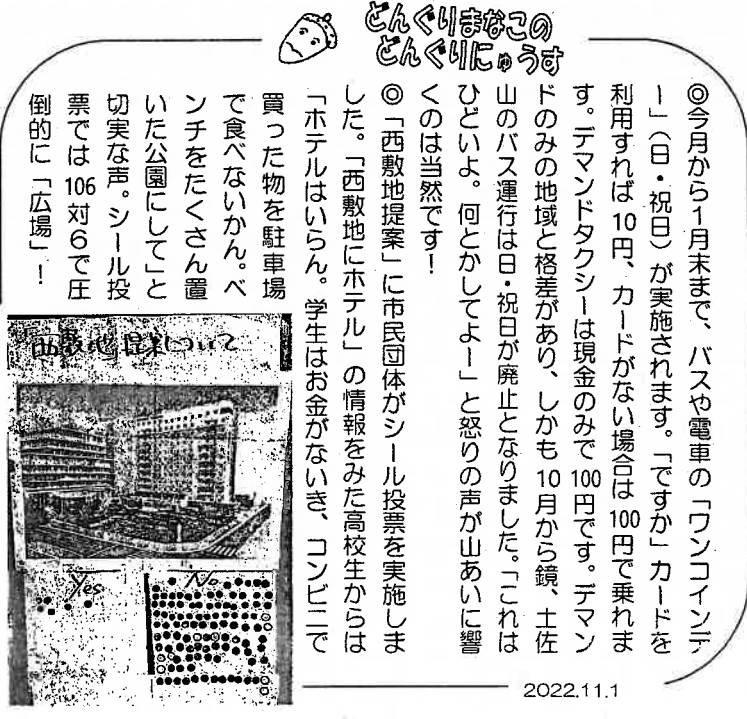 どんぐりまなこの
どんぐりにゅうす
◎今月から1月末まで、バスや電車の「ワンコインデ
ー」（日・祝日）が実施されます。「ですか」カードを
利用すれば10円、カードがない場合は100円で乗れま
す。デマンドタクシーは現金のみで100円です。デマン
ドのみの地域と格差があり、しかも10月から鏡、土佐
山のバス運行は日・祝日が廃止となりました。「これは
ひどいよ。何とかしてよー」と怒りの声が山あいに響
くのは当然です！
◎「西敷地提案」に市民団体がシール投票を実施しま
した。「西敷地にホテル」の情報をみた高校生からは
「ホテルはいらん。学生はお金がないき、コンビニで
買った物を駐車場
で食べないかん。ベ
ンチをたくさん置
いた公園にして」と
切実な声。シール投
票では106対6で圧
倒的に「広場」！
西敷地提案について
Yes
No
2022.11.1